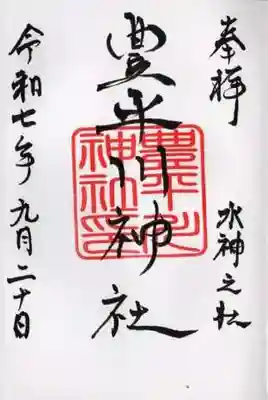 奉拝
水神之社
豊平川神社
豊平川神社印
令和七年九月二十日